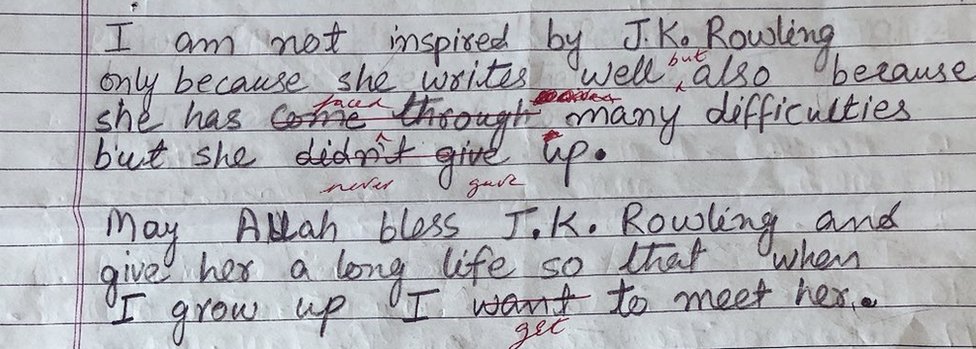 I am not inspired by J.K. Rowling
but
only because she writes well also because
faced
she has come through many difficulties
but she didn't give up.
never gave
May Allah bless J.K. Rowling and
give her a long life so that when
I grow up I want to meet her.
get